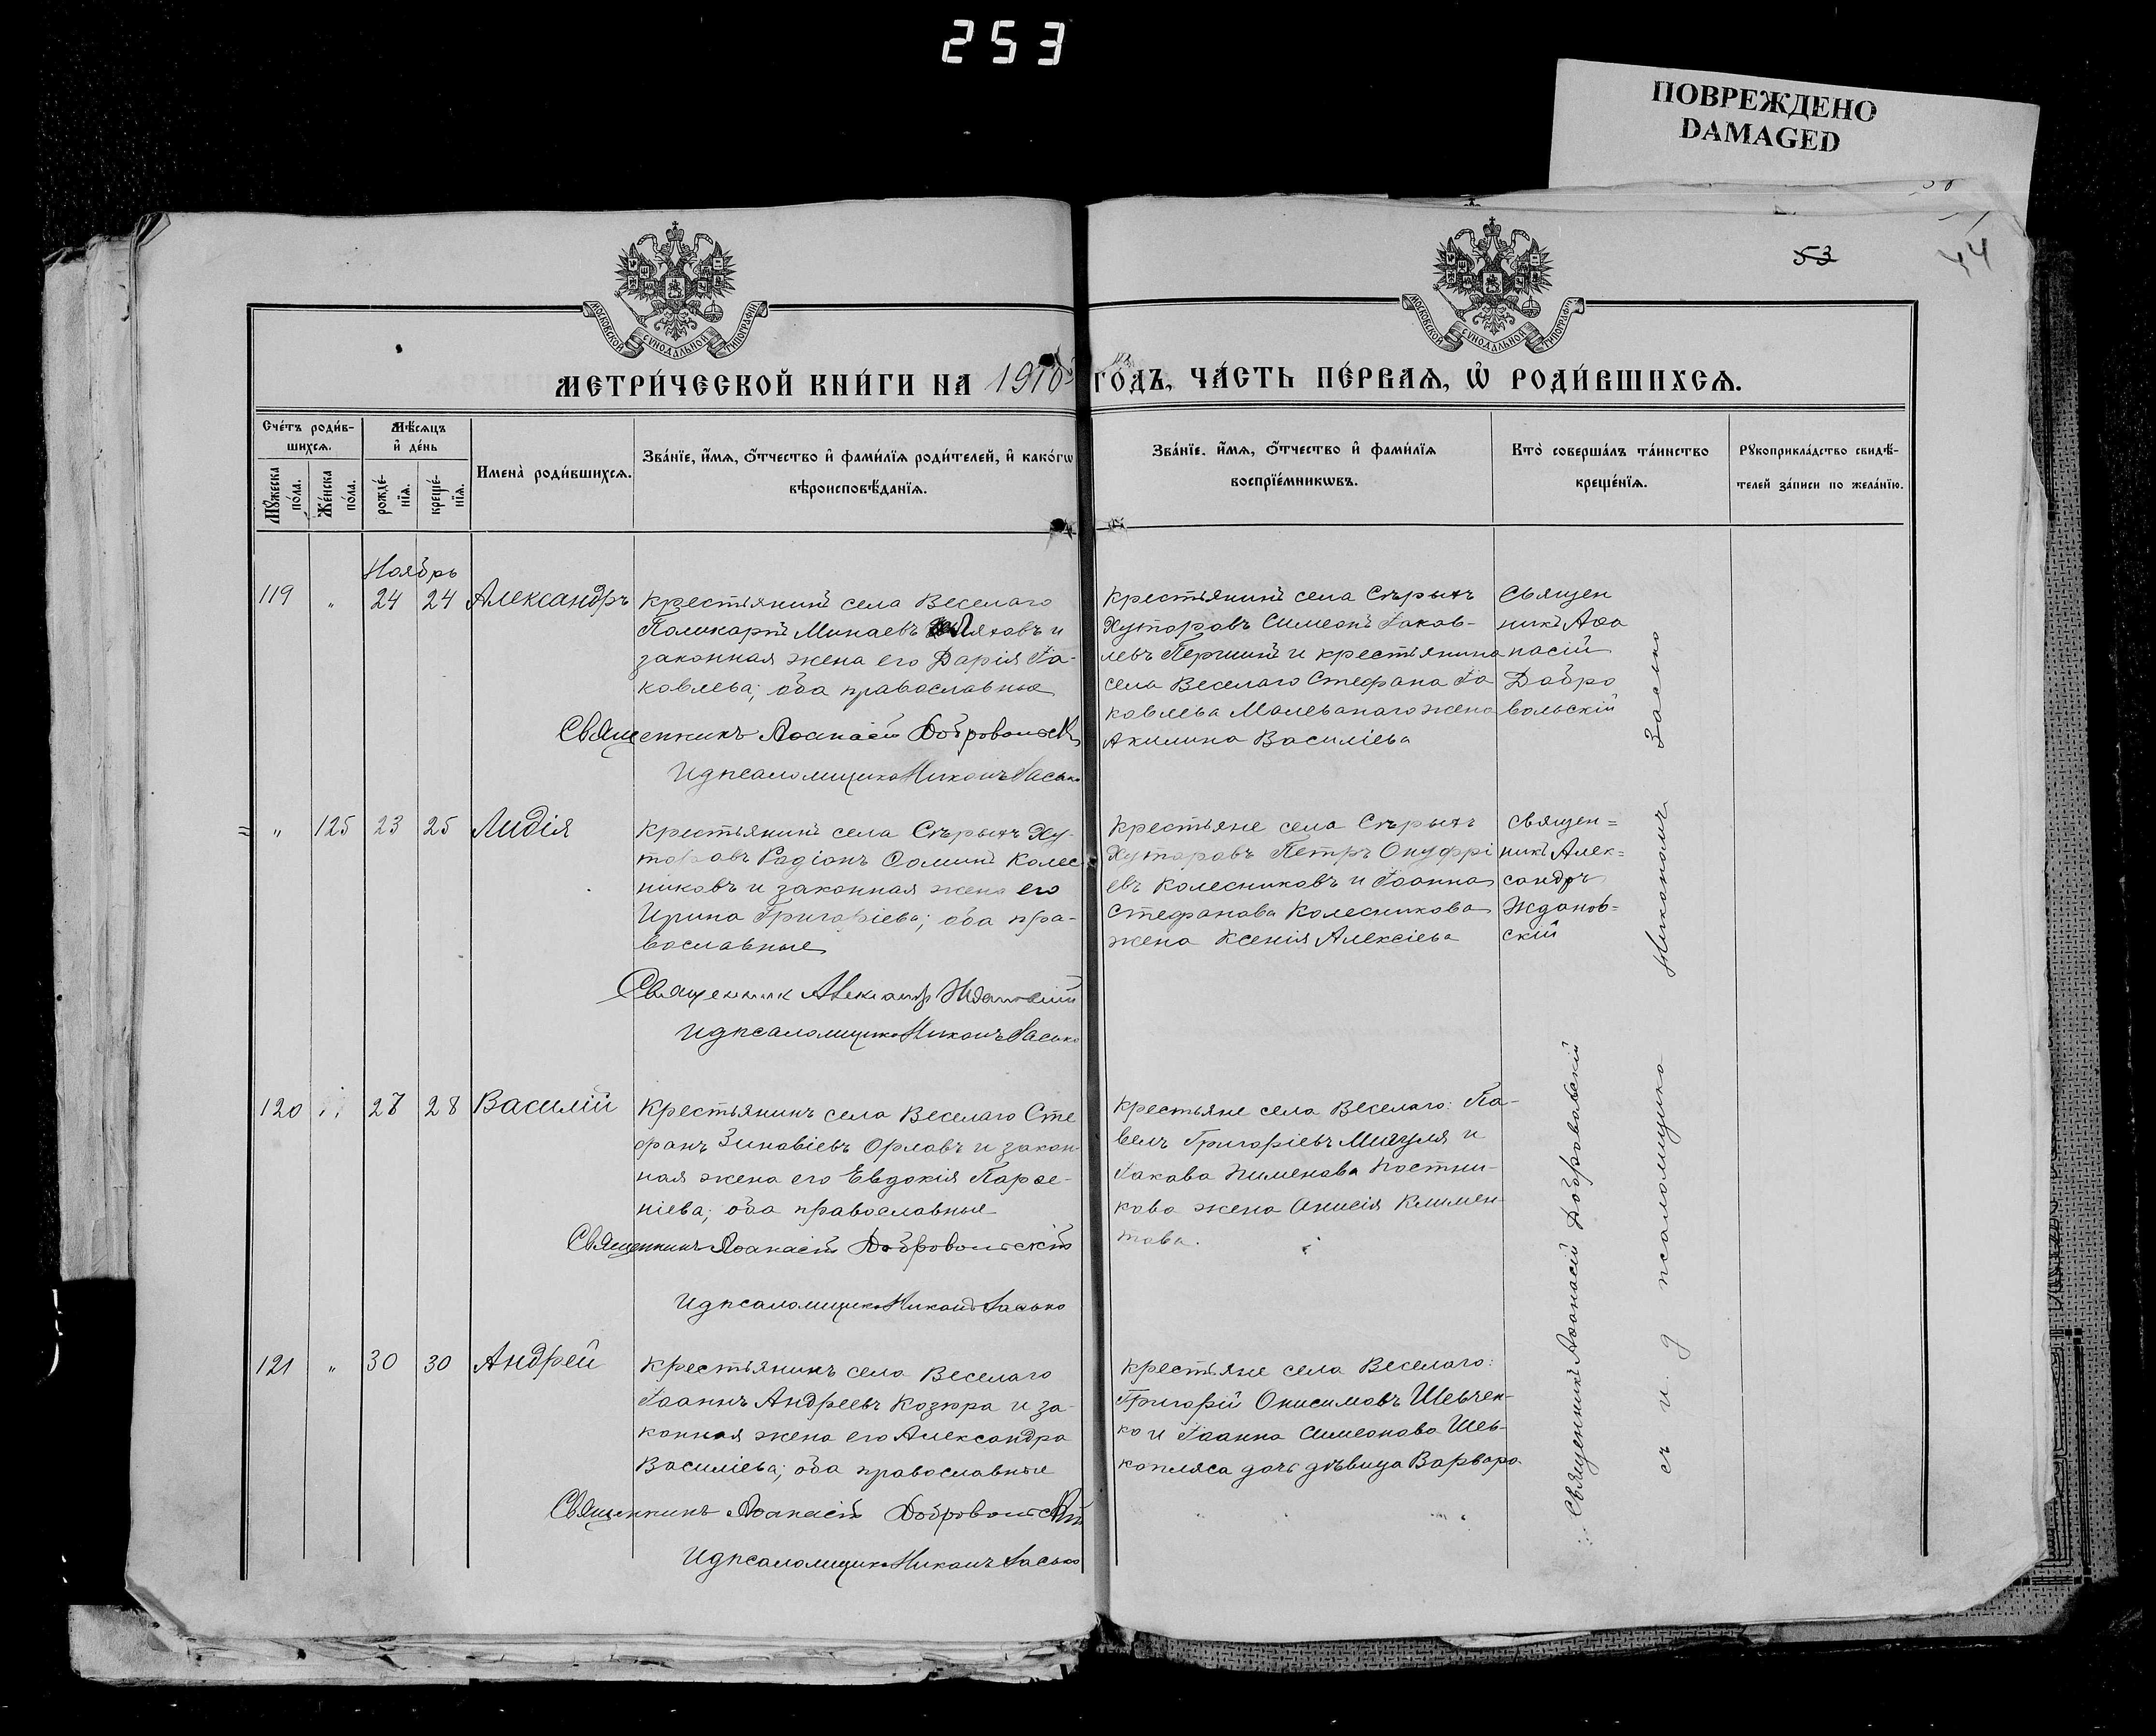 253
ПОВРЕЖДЕНО
DAMAGED
53
44
МОСКОВСКОЙ СУНОДАЛЬНОЙ ТИПОГРАФІИ
МОСКОВСКОЙ СУНОДАЛЬНОЙ ТИПОГРАФІИ
МЕТРИ́ЧЕСКОЙ КНИ́ГИ НА 1910 ГО́ДЪ, ЧА́СТЬ ПЕ́РВАѦ, Ѡ҆ РОДИ́ВШИХСѦ.
Сче́тъ роди́в-
шихсѧ.
Мꙋ́жеска по́ла.
Же́нска по́ла.
Мѣ́сѧцъ и҆ де́нь
рожде́-нїѧ.
креще́-нїѧ.
Имена̀ роди́вшихсѧ.
Зва́нїе, и҆́мѧ, ѻ҆́тчество и҆ фами́лїѧ роди́телей, и҆ како́гѡ
вѣроисповѣ́данїѧ.
Зва́нїе. и҆́мѧ, ѻ҆́тчество и҆ фами́лїѧ
воспрїе́мникѡвъ.
Кто̀ соверша́лъ та́инство
креще́нїѧ.
Рꙋкоприкла́дство свидѣ́-
телей за́писи по жела́нїю.
Ноябрь
119 " 24 24 Александръ
Крестьянинъ села Веселаго
Поликарпъ Минаевъ и
законная жена его Дарія Іа-
ковлева; оба православные
Священникъ Аѳанасій Добровольскій
И д псаломщика Никонъ Засько
Крестьянинъ села Сѣрыхъ
Хуторовъ Симеонъ Іаков-
левъ Першинъ и крестьянина
села Веселаго Стефана Іа
ковлева Малеванаго жена
Акилина Василіева
Священ
никъ Аѳа
насій
Добро
вольскій
" 125 23 25 Лидія
Крестьянинъ села Сѣрыхъ Ху-
торовъ Родіонъ Ѳоминъ Колес
никовъ и законная жена его
Ирина Григоріева; оба пра-
вославные
Священник Александр Ждановский
И д псаломщика Никонъ Засько
Крестьяне села Сѣрыхъ
Хуторовъ Петръ Онуфрі
евъ Колесниковъ и Іоанна
Стефанова Колесникова
жена Ксенія Алексіева
Священ=
никъ Алек=
сандръ
Жданов=
скій
120 " 27 28 Василій
Крестьянинъ села Веселаго Сте
фанъ Зиновіевъ Орловъ и закон
ная жена его Евдокія Парѳе-
ніева; оба православные
Священникъ Аѳанасій Добровольскій
И д псаломщика Никонъ Засько
Крестьяне села Веселаго: Па-
велъ Григоріевъ и
Іакова Пименова Постни-
кова жена Анисія Климен-
това.
121 " 30 30 Андрей
Крестьянинъ села Веселаго
Іоаннъ Андреевъ Козюра и за-
конная жена его Александра
Василіева; оба православные
Священникъ Аѳанасій Добровольскій
И д псаломщика Никонъ Засько
Крестьяне села Веселаго:
Григорій Онисимовъ Шевчен-
ко и Іоанна Симеонова Шев-
копляса дочь дѣвица Варвара
Священникъ Аѳанасій Добровольскій
съ и. д псаломщика Никономъ Засько